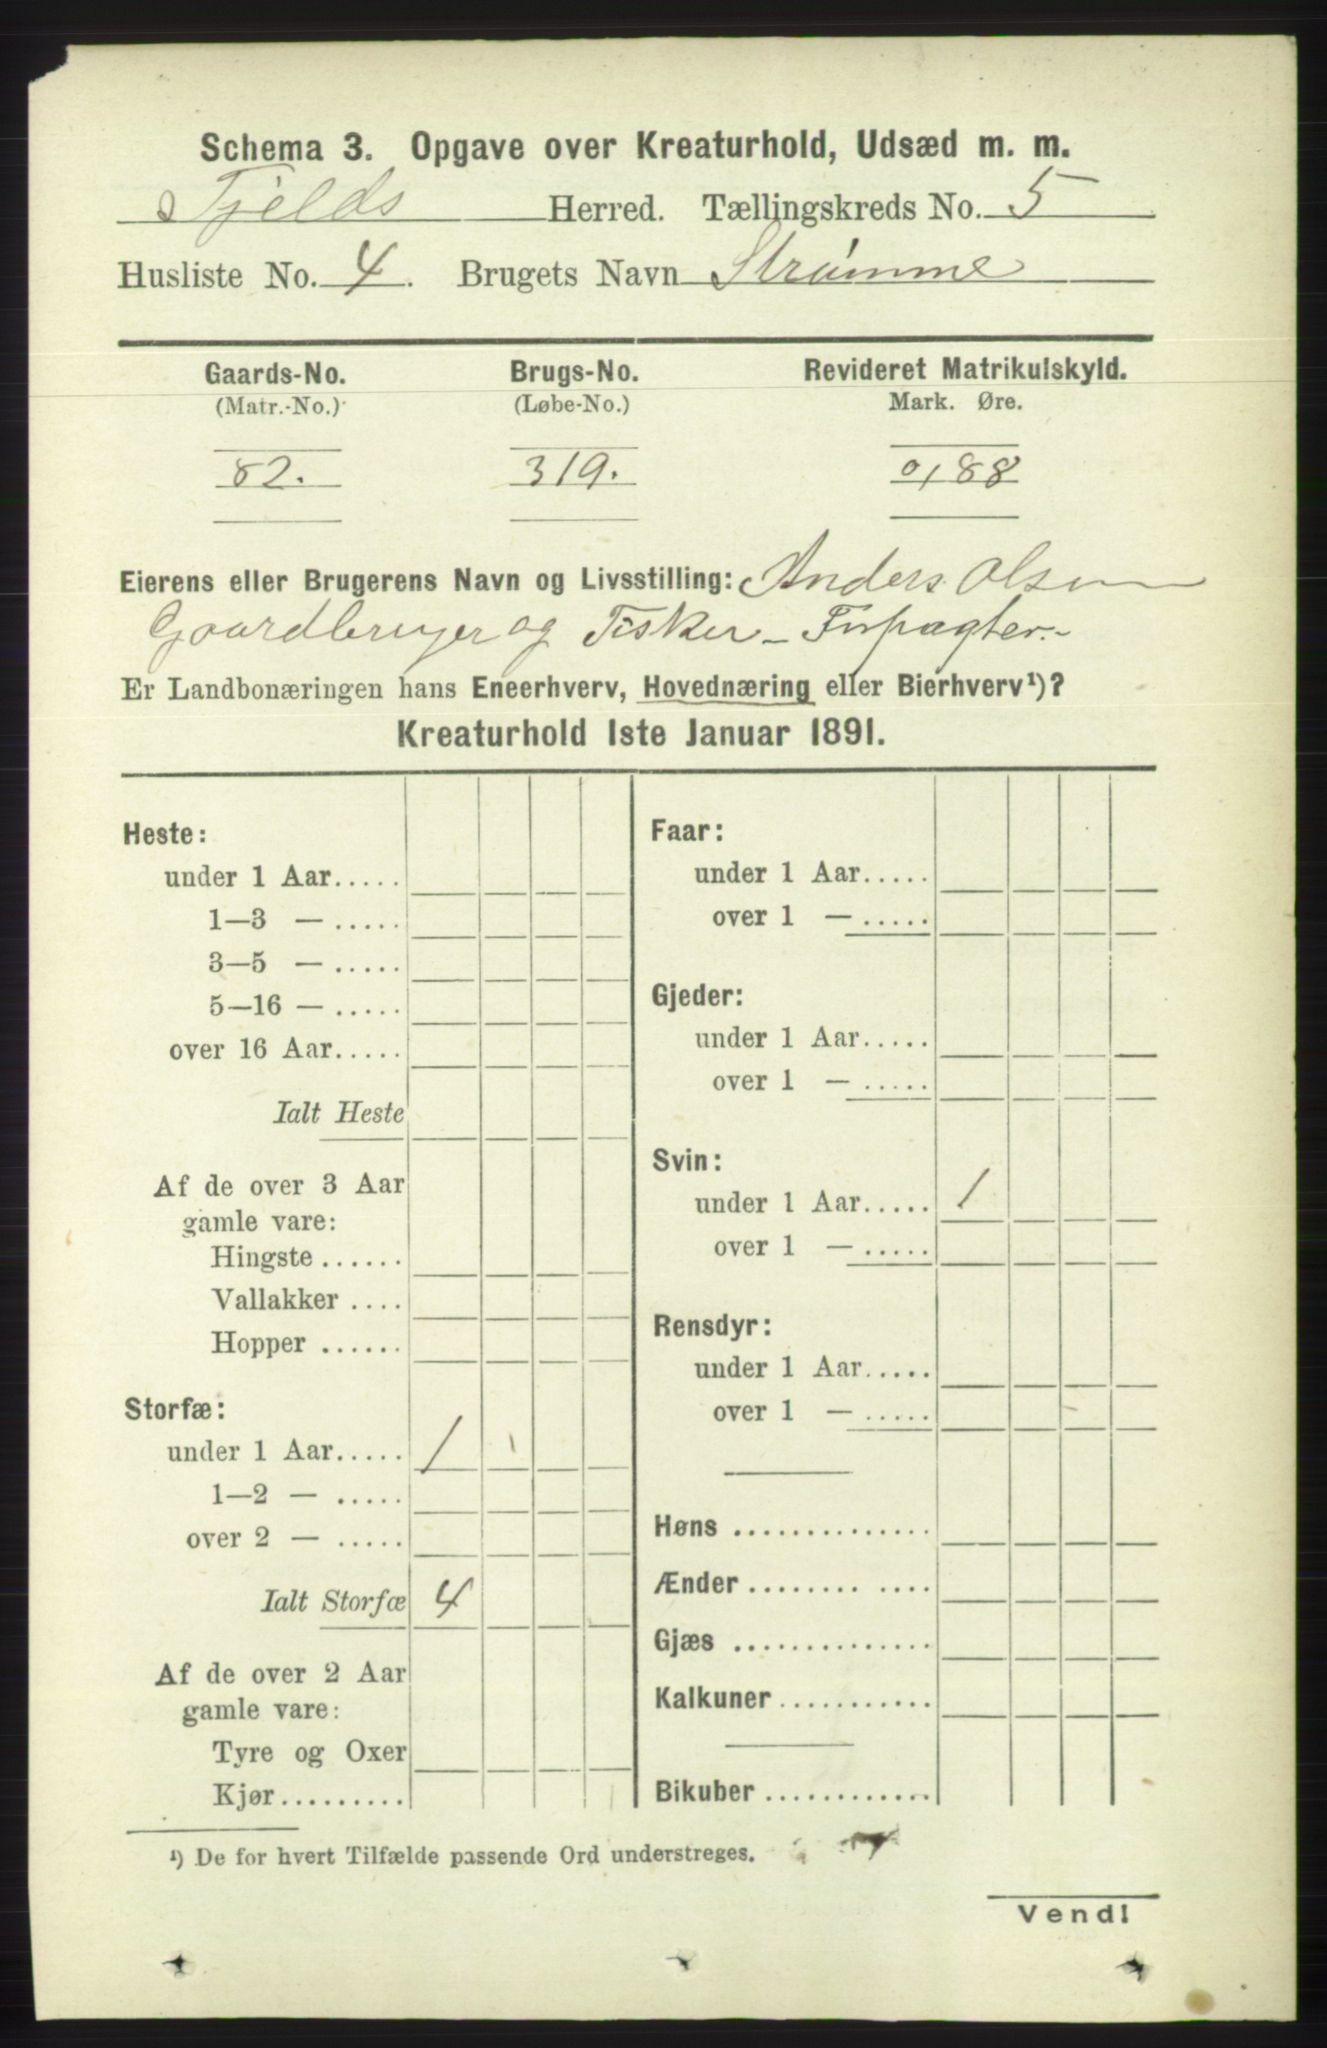 Schema 3. Opgave over Kreaturhold, Udsæd m. m.
Fjelds Herred. Tællingskreds No. 5
Husliste No. 4. Brugets Navn Strømme
Gaards-No. Brugs-No. Revideret Matrikulskyld.
(Matr.-No.) (Løbe-No.) Mark. Øre.
82. 319. 0,88
Eierens eller Brugerens Navn og Livsstilling: Anders Olsen
Gaardbruger og Fisker - Forpagter.-
Er Landbonæringen hans Eneerhverv, Hovednæring eller Bierhverv¹)?
Kreaturhold 1ste Januar 1891.
Heste:
under 1 Aar.....
1—3 — .....
3—5 — .....
5—16 — .....
over 16 Aar.....
Ialt Heste
Af de over 3 Aar
gamle vare:
Hingste ......
Vallakker ....
Hopper ......
Storfæ:
under 1 Aar..... 1
1—2 — .....
over 2 — .....
Ialt Storfæ 4
Af de over 2 Aar
gamle vare:
Tyre og Oxer
Kjør.........
Faar:
under 1 Aar.....
over 1 — .....
Gjeder:
under 1 Aar.....
over 1 — .....
Svin:
under 1 Aar..... 1
over 1 — .....
Rensdyr:
under 1 Aar.....
over 1 — .....
Høns ..............
Ænder ........ ....
Gjæs ..............
Kalkuner ...........
Bikuber ............
¹) De for hvert Tilfælde passende Ord understreges.
Vend!